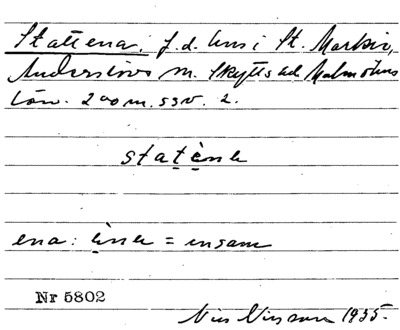 Stattena. f.d. hus i St. Markie,
Anderslövs sn. Skytts hd Malmöhus
län. 200 m. SSV. 2.
statèna
ena: èna = ensam
Nr 5802
Nils Nilsson 1935.